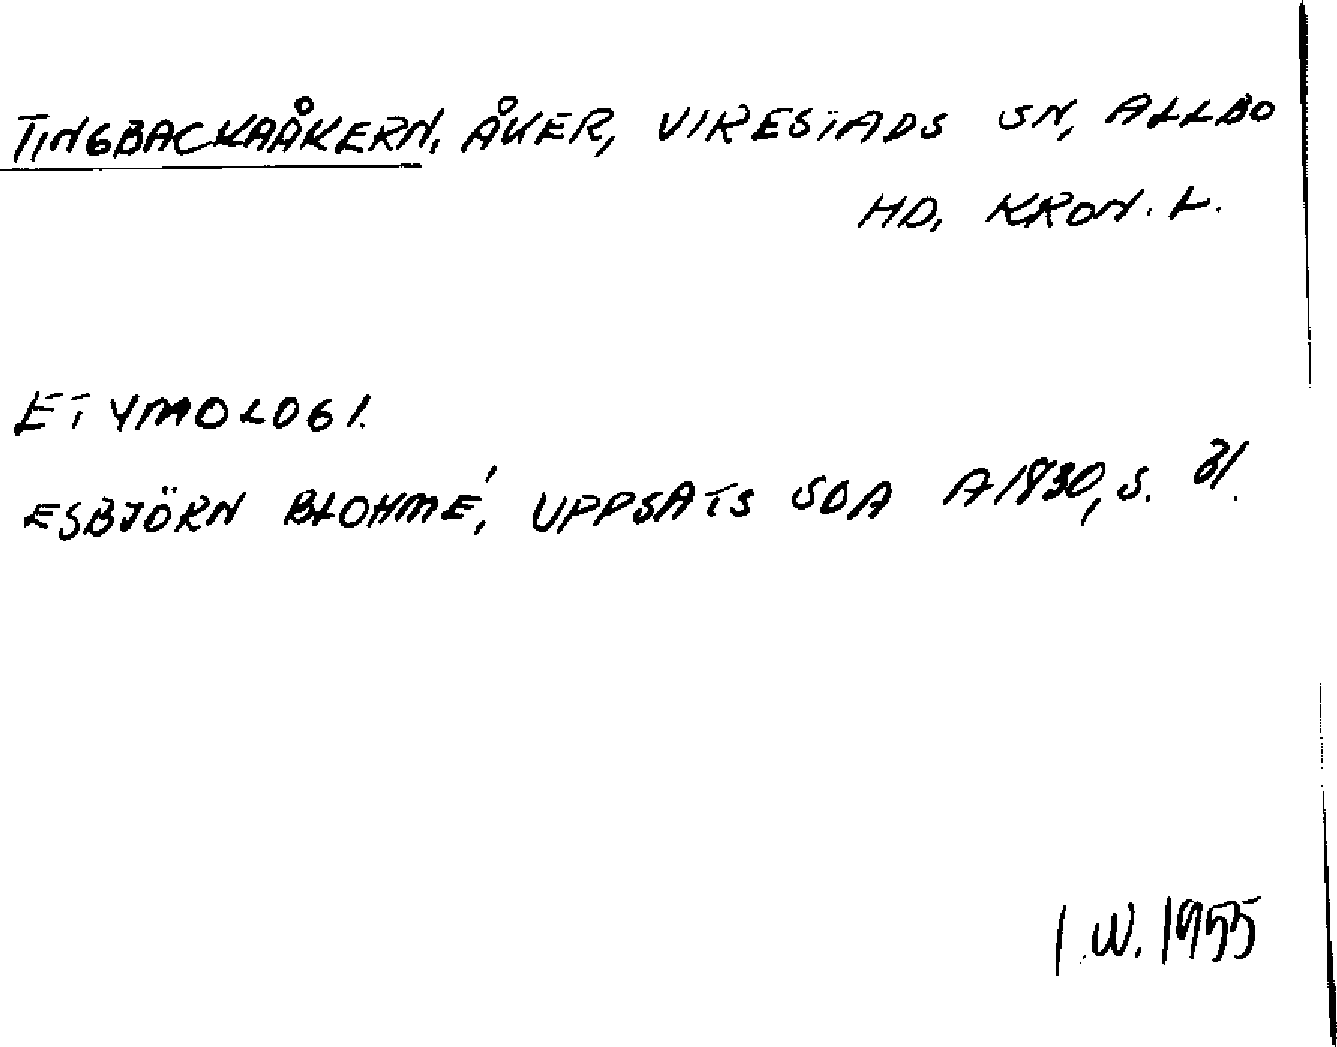 TINGBACKAÅKERN, ÅKER, VIRESTADS SN, ALLBO
HD, KRON. L.
ETYMOLOGI.
ESBJÖRN BLOHMÉ, UPPSATS SOA A1830, S.
I.W. 1955